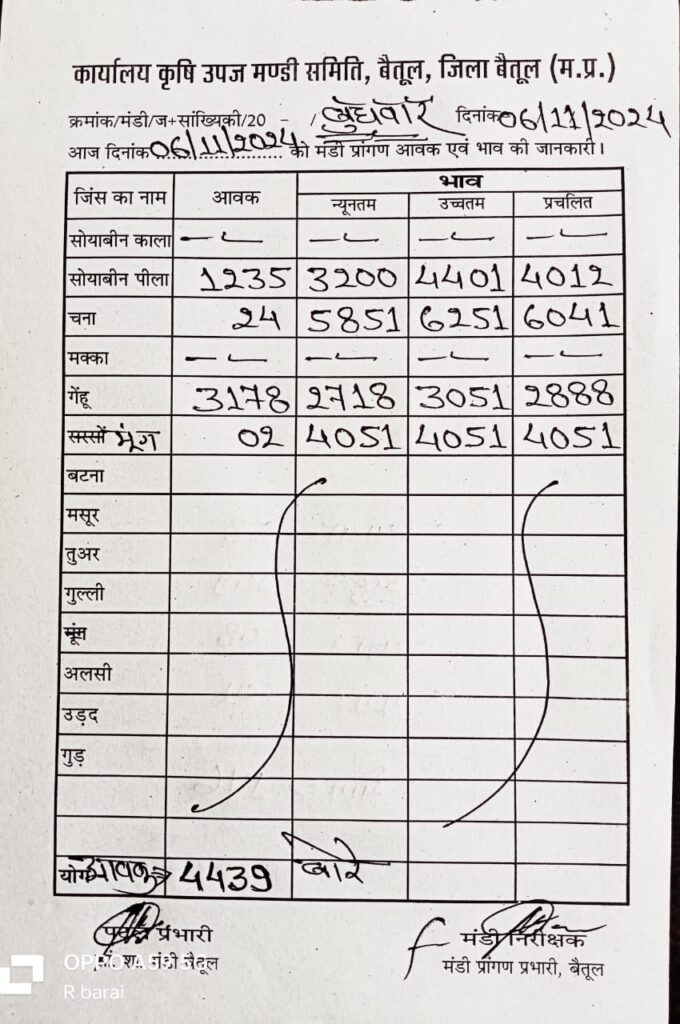 कार्यालय कृषि उपज मण्डी समिति, बैतूल, जिला बैतूल (म.प्र.)
क्रमांक/मंडी/ज+सांख्यिकी/20 - / बुधवार दिनांक 06/11/2024
आज दिनांक 06/11/2024 को मंडी प्रांगण आवक एवं भाव की जानकारी।
जिंस का नाम आवक भाव
न्यूनतम उच्चतम प्रचलित
सोयाबीन काला — — — —
सोयाबीन पीला 1235 3200 4401 4012
चना 24 5851 6251 6041
मक्का — — — —
गेंहू 3178 2718 3051 2888
सरसों मूंग 02 4051 4051 4051
बटना
मसूर
तुअर
गुल्ली
मूंग
अलसी
उड़द
गुड़
योग आवक 4439 बोरे
प्रभारी मंडी निरीक्षक
मंडी बैतूल मंडी प्रांगण प्रभारी, बैतूल
R barai